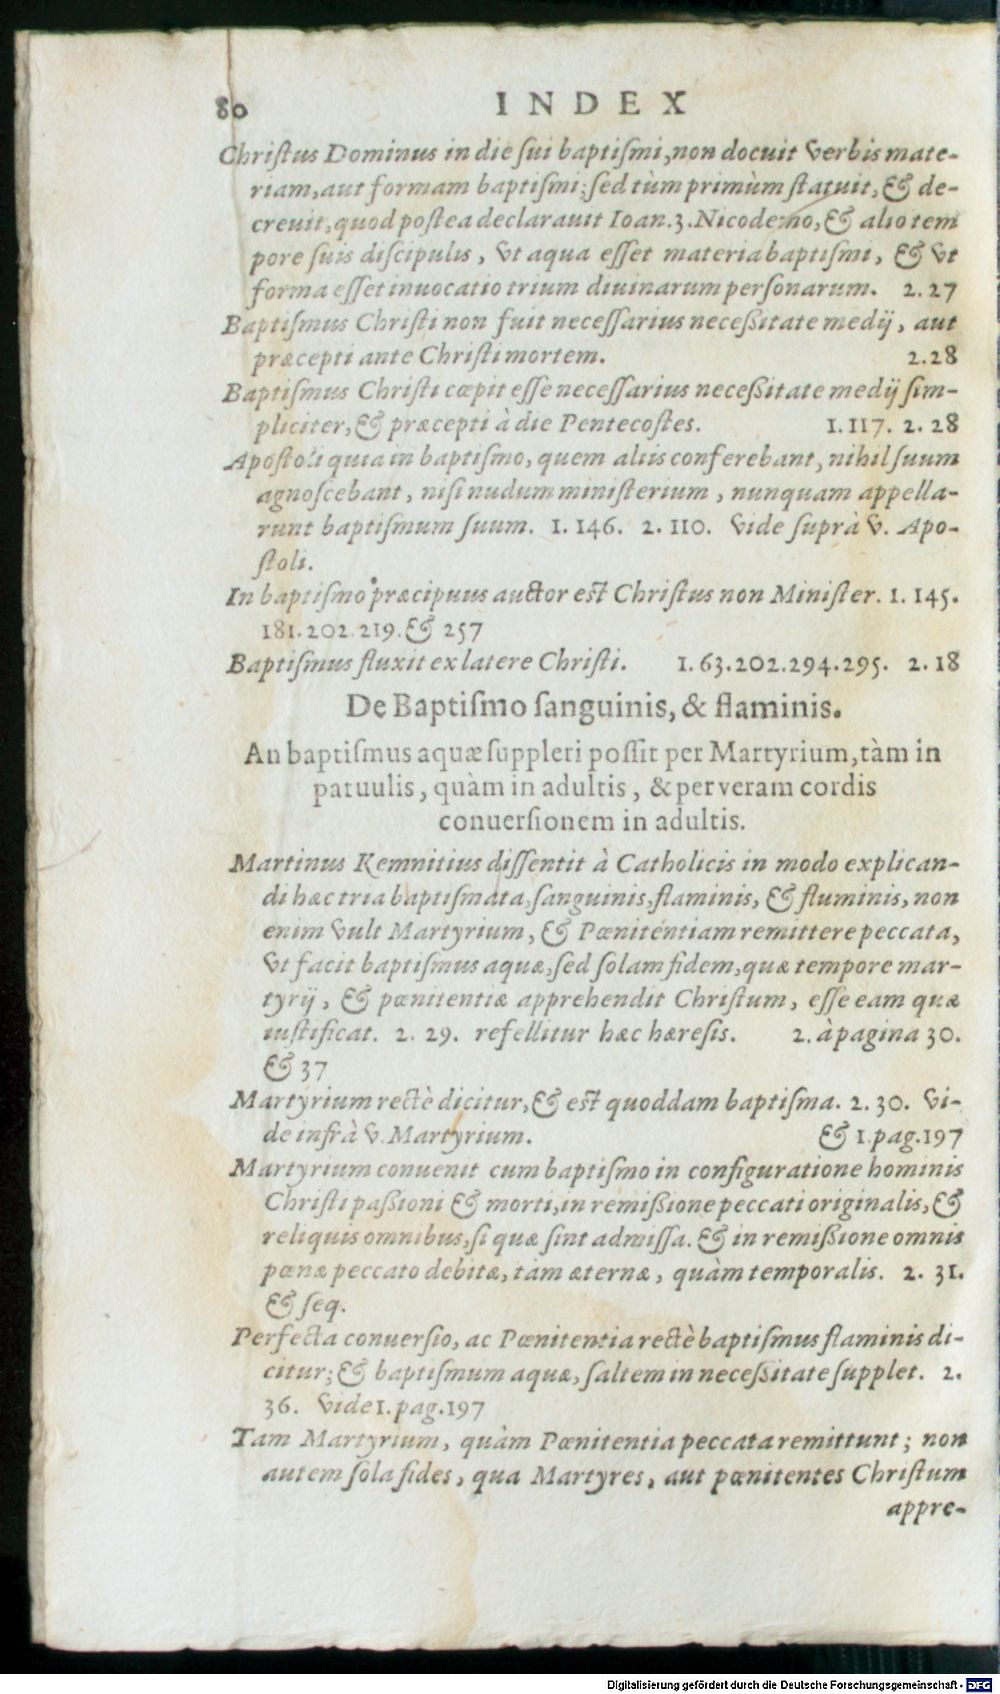 80 INDEX
Chriſtus Dominus in die ſui baptiſmi, non docuit verbis mate-
riam, aut formam baptiſmi; ſed tùm primùm ſtatuit, & de-
creuit, quod poſtea declarauit Ioan. 3. Nicodemo, & alio tem
pore ſuis diſcipulis, vt aqua eſſet materia baptiſmi, & vt
forma eſſet inuocatio trium diuinarum perſonarum. 2. 27
Baptiſmus Chriſti non fuit neceſſarius neceßitate medij, aut
præcepti ante Chriſti mortem. 2. 28
Baptiſmus Chriſti cœpit eſſe neceſſarius neceßitate medij ſim-
pliciter, & præcepti à die Pentecoſtes. 1. 117. 2. 28
Apoſtoli quia in baptiſmo, quem aliis conferebant, nihil ſuum
agnoſcebant, niſi nudum miniſterium, nunquam appella-
runt baptiſmum ſuum. 1. 146. 2. 110. Vide ſuprà V. Apo-
ſtoli.
In baptiſmo præcipuus auctor eſt Chriſtus non Miniſter. 1. 145.
181. 202. 219. & 257
Baptiſmus fluxit ex latere Chriſti. 1. 63. 202. 294. 295. 2. 18
De Baptiſmo ſanguinis, & flaminis.
An baptiſmus aquæ ſuppleri poſſit per Martyrium, tàm in
paruulis, quàm in adultis, & per veram cordis
conuerſionem in adultis.
Martinus Kemnitius diſſentit à Catholicis in modo explican-
di hæc tria baptiſmata, ſanguinis, flaminis, & fluminis, non
enim vult Martyrium, & Pœnitentiam remittere peccata,
vt facit baptiſmus aquæ, ſed ſolam fidem, quæ tempore mar-
tyrij, & pœnitentiæ apprehendit Chriſtum, eſſe eam quæ
iuſtificat. 2. 29. refellitur hæc hæreſis. 2. à pagina 30.
& 37
Martyrium rectè dicitur, & eſt quoddam baptiſma. 2. 30. Vi-
de infrà V. Martyrium. & 1. pag. 197
Martyrium conuenit cum baptiſmo in configuratione hominis
Chriſti paßioni & morti, in remißione peccati originalis, &
reliquis omnibus, ſi quæ ſint admiſſa. & in remißione omnis
pœnæ peccato debitæ, tàm æternæ, quàm temporalis. 2. 31.
& ſeq.
Perfecta conuerſio, ac Pœnitentia rectè baptiſmus flaminis di-
citur; & baptiſmum aquæ, ſaltem in neceßitate ſupplet. 2.
36. Vide 1. pag. 197
Tam Martyrium, quàm Pœnitentia peccata remittunt; non
autem ſola fides, qua Martyres, aut pœnitentes Chriſtum
appre-
Digitalisierung gefördert durch die Deutsche Forschungsgemeinschaft - DFG